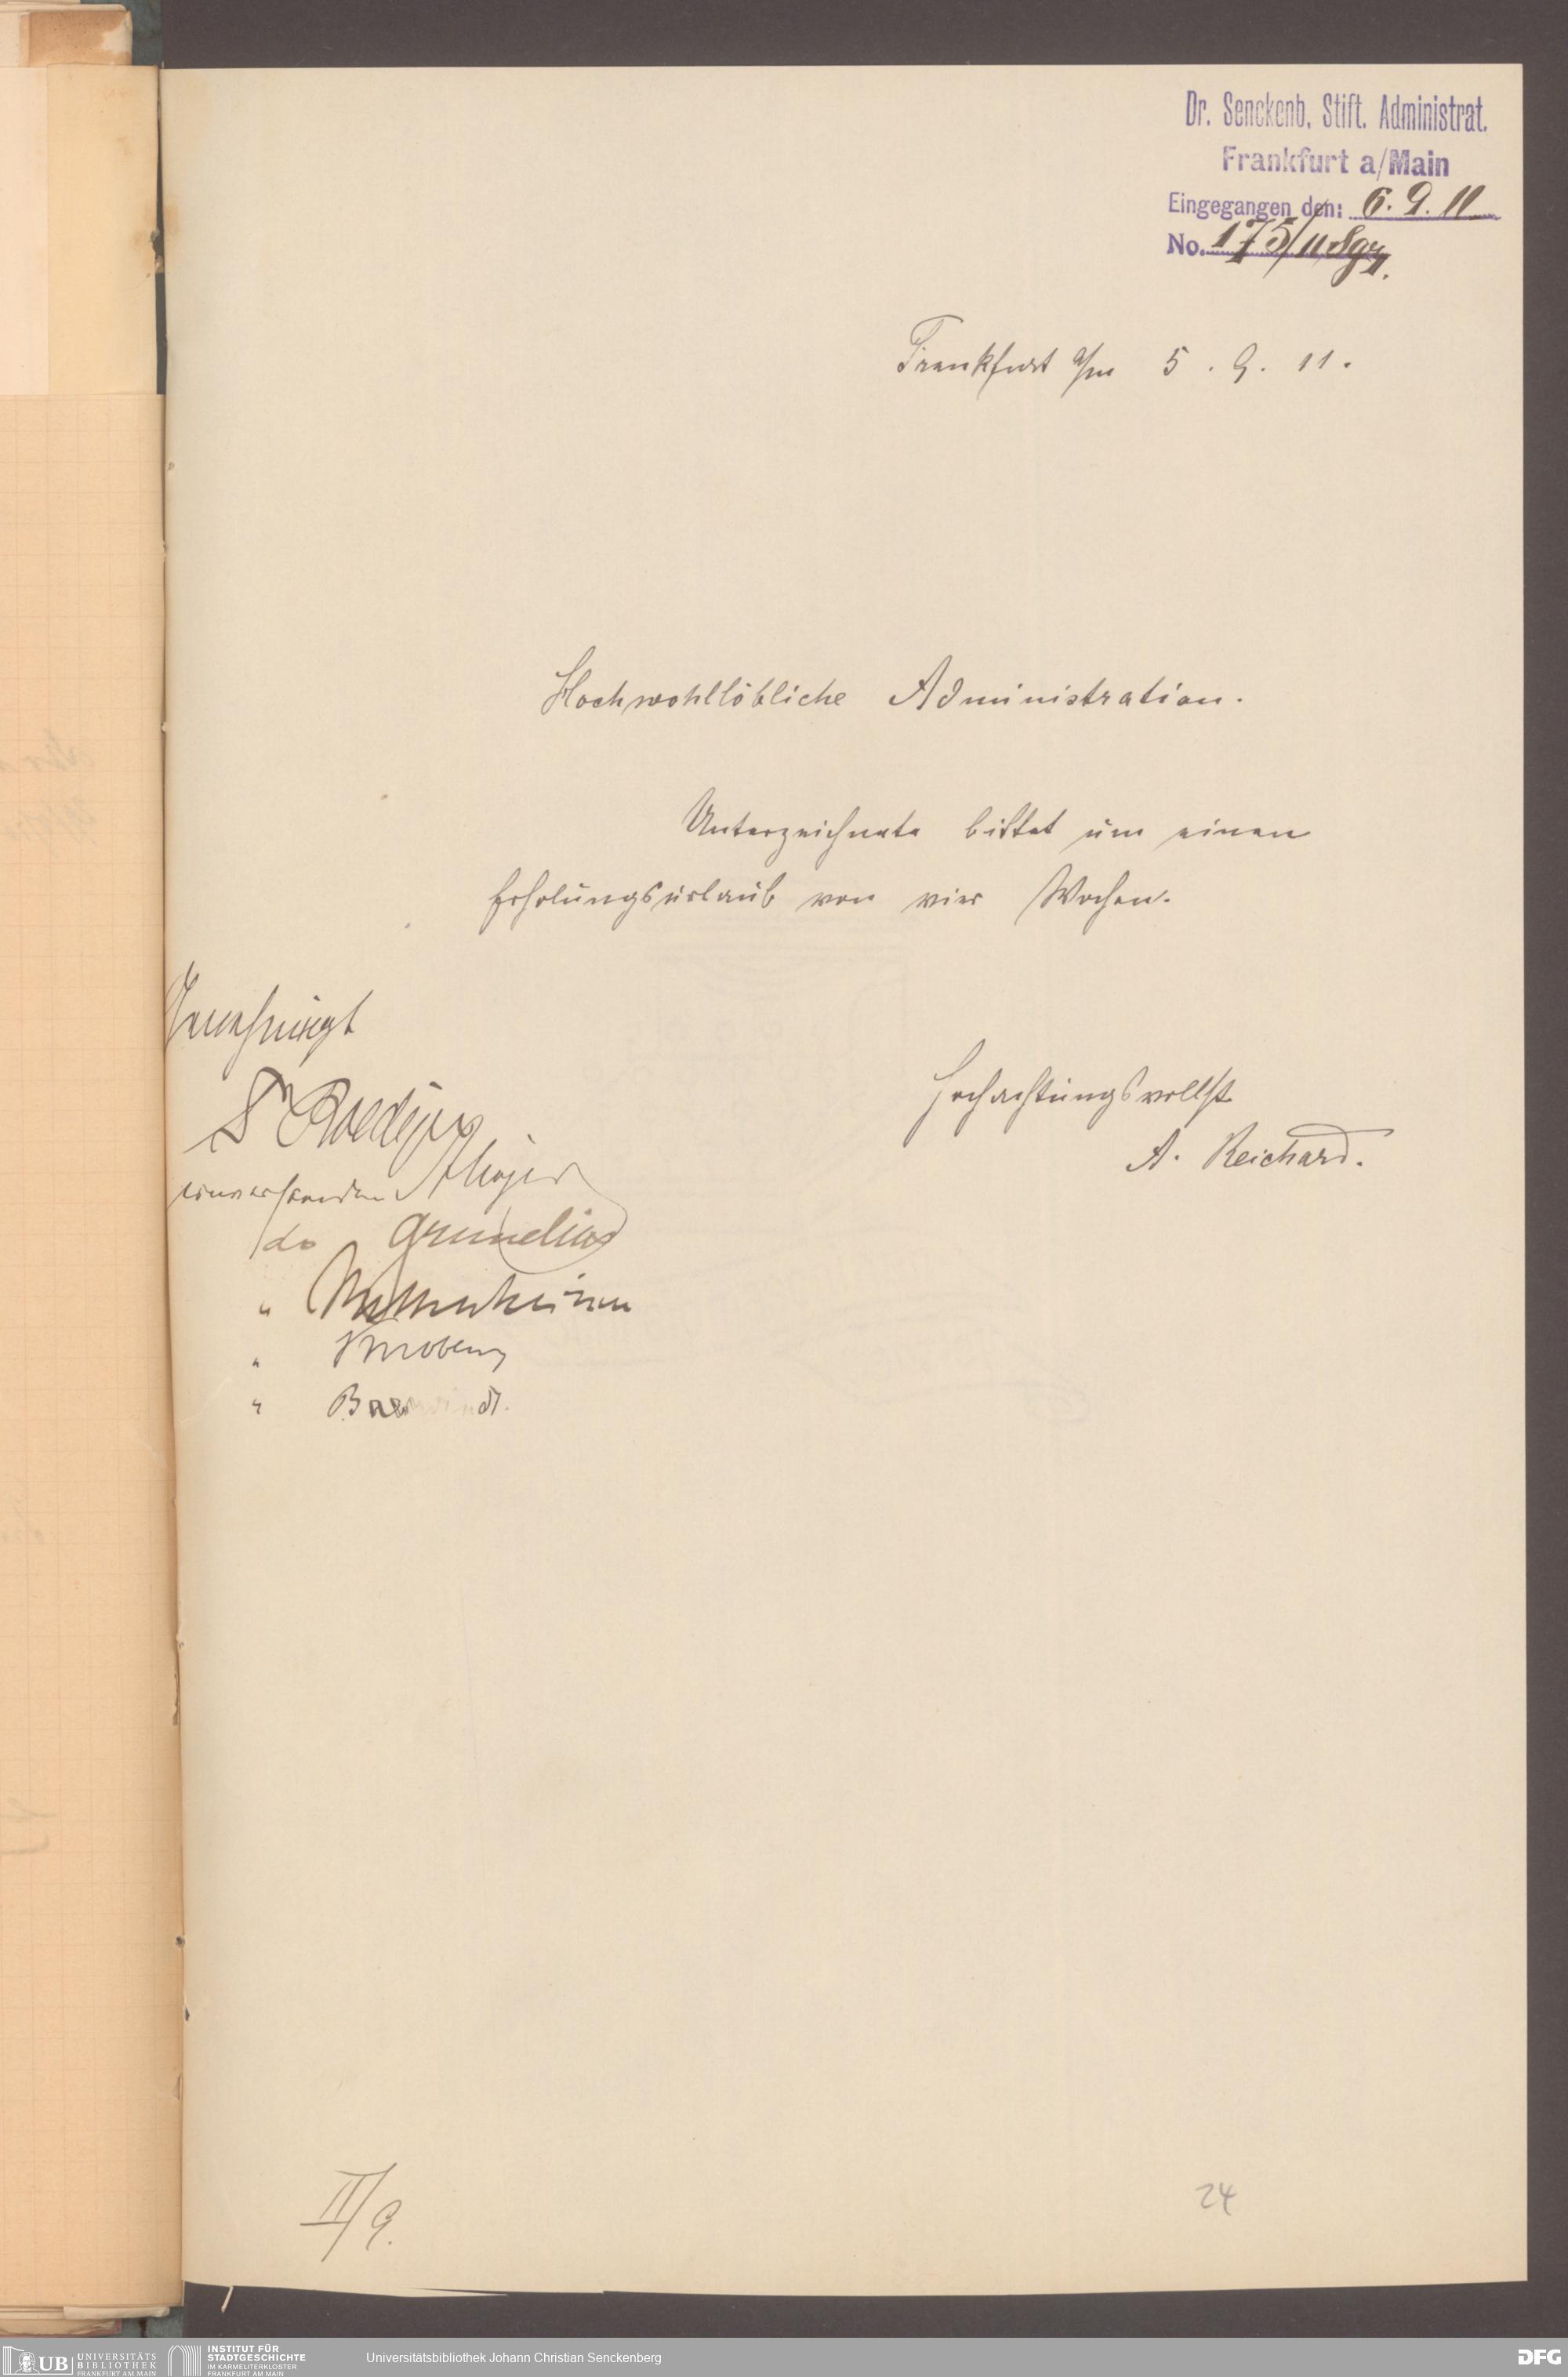 Dr. Senckenb. Stift. Administrat.
Frankfurt a/Main
Eingegangen den: 6. 9. 11
No. 175/11 Sgr.
Frankfurt a/m 5. 9. 11.
Hochwohllöbliche Administration.
Unterzeichnete bittet um einen
Erholungsurlaub von vier Wochen.
Genehmigt
Hochachtungsvollst
A. Reichard.
Dr Roediger
einverstanden
do Grunelius
"
" Knoblauch
" Baerwindt.
II/9.
24
UB UNIVERSITÄTS
BIBLIOTHEK
FRANKFURT AM MAIN
INSTITUT FÜR
STADTGESCHICHTE
IM KARMELITERKLOSTER
FRANKFURT AM MAIN
Universitätsbibliothek Johann Christian Senckenberg
DFG